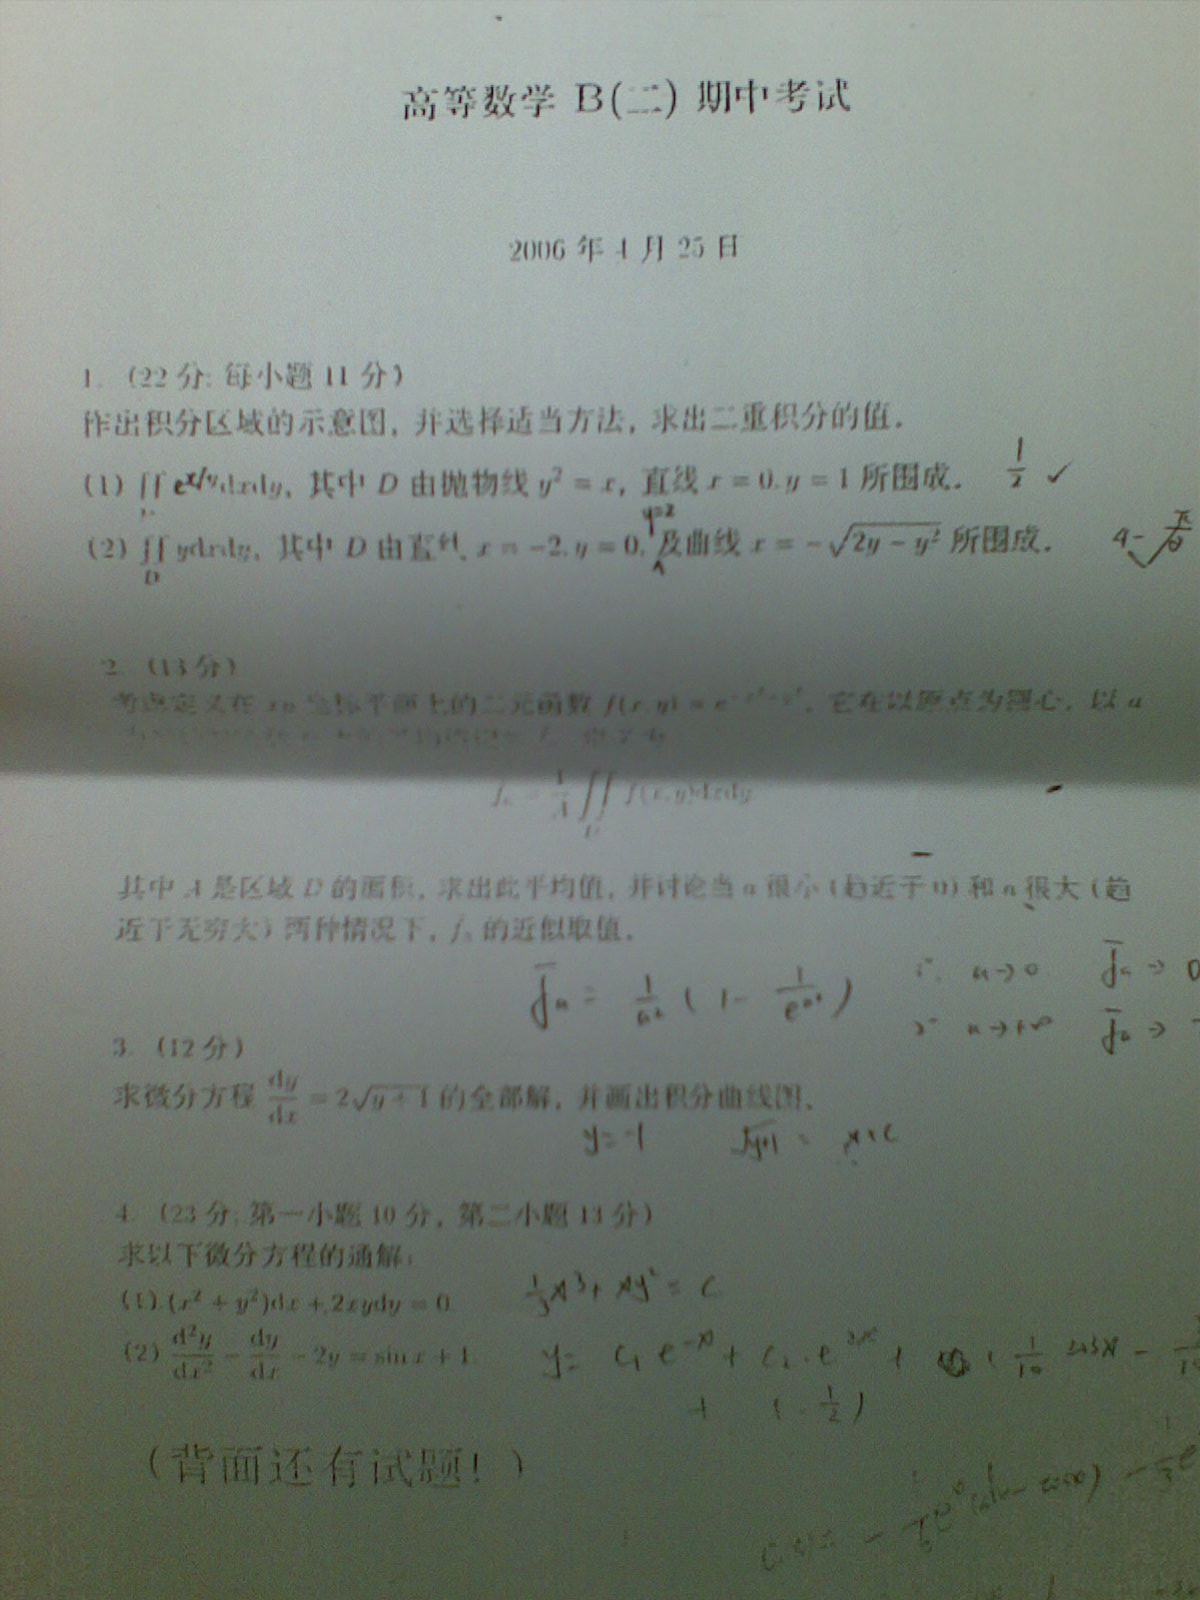 高等数学 B(二) 期中考试
2006 年 4 月 25 日
1. (22 分; 每小题 11 分)
作出积分区域的示意图, 并选择适当方法, 求出二重积分的值.
(1) ∬_D e^{x/y}dxdy, 其中 D 由抛物线 y² = x, 直线 x = 0, y = 1 所围成. 1/2 ✓
y=2
(2) ∬_D ydxdy, 其中 D 由直线 x = -2, y = 0, 及曲线 x = -√(2y - y²) 所围成. 4-
2. (13 分)
考虑定义在 xy 坐标平面上的二元函数 f(x, y) = e^{-x²-y²}, 它在以原点为圆心, 以 a
定义为
f̄ₐ = 1/A ∬_D f(x, y)dxdy
其中 A 是区域 D 的面积, 求出此平均值, 并讨论当 a 很小 (趋近于 0) 和 a 很大 (趋
近于无穷大) 两种情况下, f̄ₐ 的近似取值.
f̄ₐ = 1/a² (1 - 1/e^{a²}) 1° a→0 f̄ₐ → 0
2° a→+∞ f̄ₐ →
3. (12 分)
求微分方程 dy/dx = 2√(y + 1) 的全部解, 并画出积分曲线图.
y=-1 √(y+1) = x+c
4. (23 分; 第一小题 10 分, 第二小题 13 分)
求以下微分方程的通解:
(1) (x² + y²)dx + 2xydy = 0. 1/3 x³ + xy² = C
(2) d²y/dx² - dy/dx - 2y = sin x + 1. y = C₁ e^{-x} + C₂ · e^{2x} + ( 1/10 cosx -
+ ( - 1/2 )
(背面还有试题! )